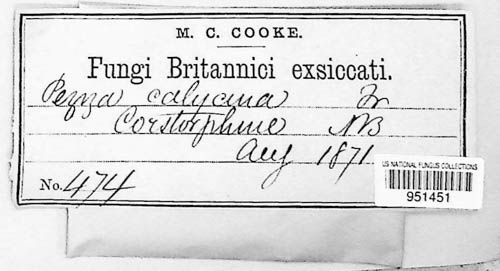 M. C. COOKE.
Fungi Britannici exsiccati.
Peziza calycina Fr
Corstorphine NB
Aug 1871
US NATIONAL FUNGUS COLLECTIONS
951451
No. 474